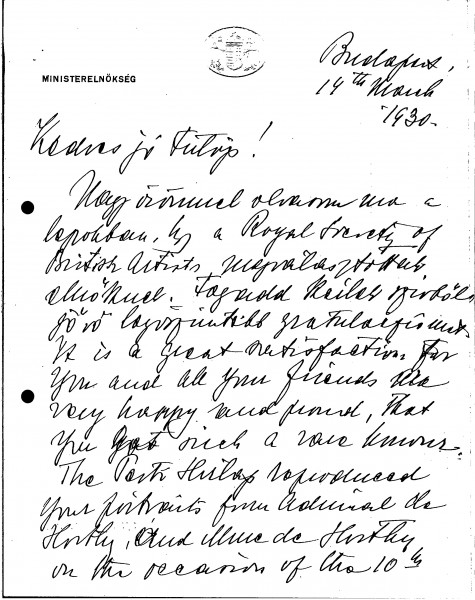 MINISTERELNÖKSÉG
Budapest,
14th March
1930.
Kedves jó Fülöp!
Nagy örömmel olvasom ma a
lapokban, hgy a Royal Society of
British Artists megválasztottak
elnöknek. Fogadd
jövő legőszintébb gratulatiómat.
It is a great satisfaction for
you and all your friends are
very happy and proud, that
you got such a rare honour.
The Pesti Hirlap reproduced
your portraits from Admiral de
Horthy, and Mme de Horthy
on the occasion of the 10th